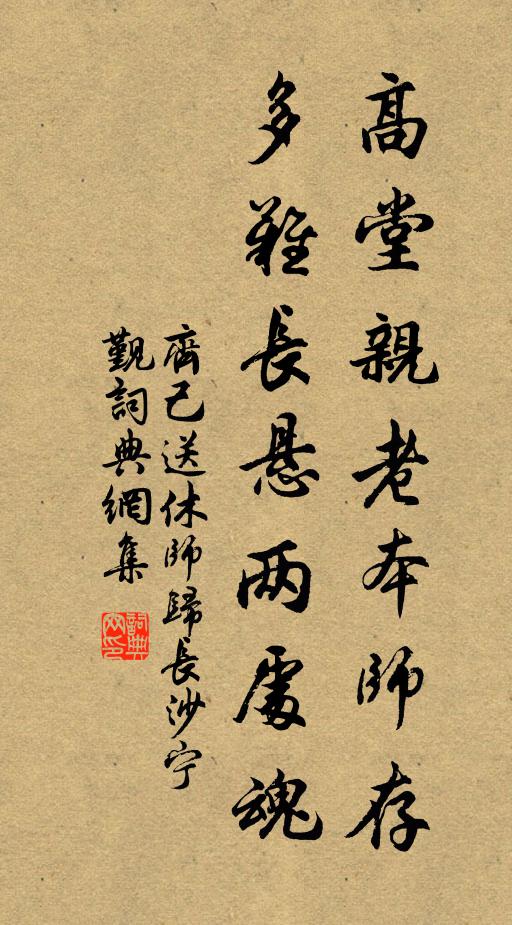 高堂親老本師存
多難長悬两處魂
齊己送休師歸長沙宁
觀詞典網集
詞典
网印